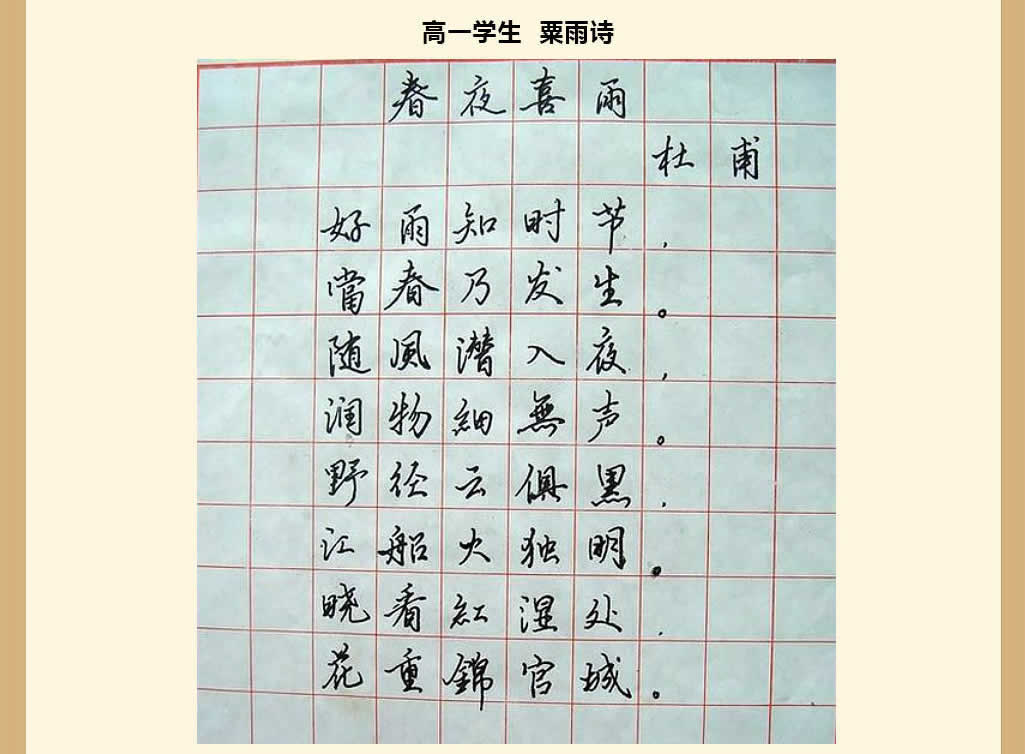 高一学生 粟雨诗
春夜喜雨
杜甫
好雨知时节,
當春乃发生。
随風潜入夜,
润物細無声。
野径云俱黑,
江船火独明。
晓看紅湿处,
花重錦官城。